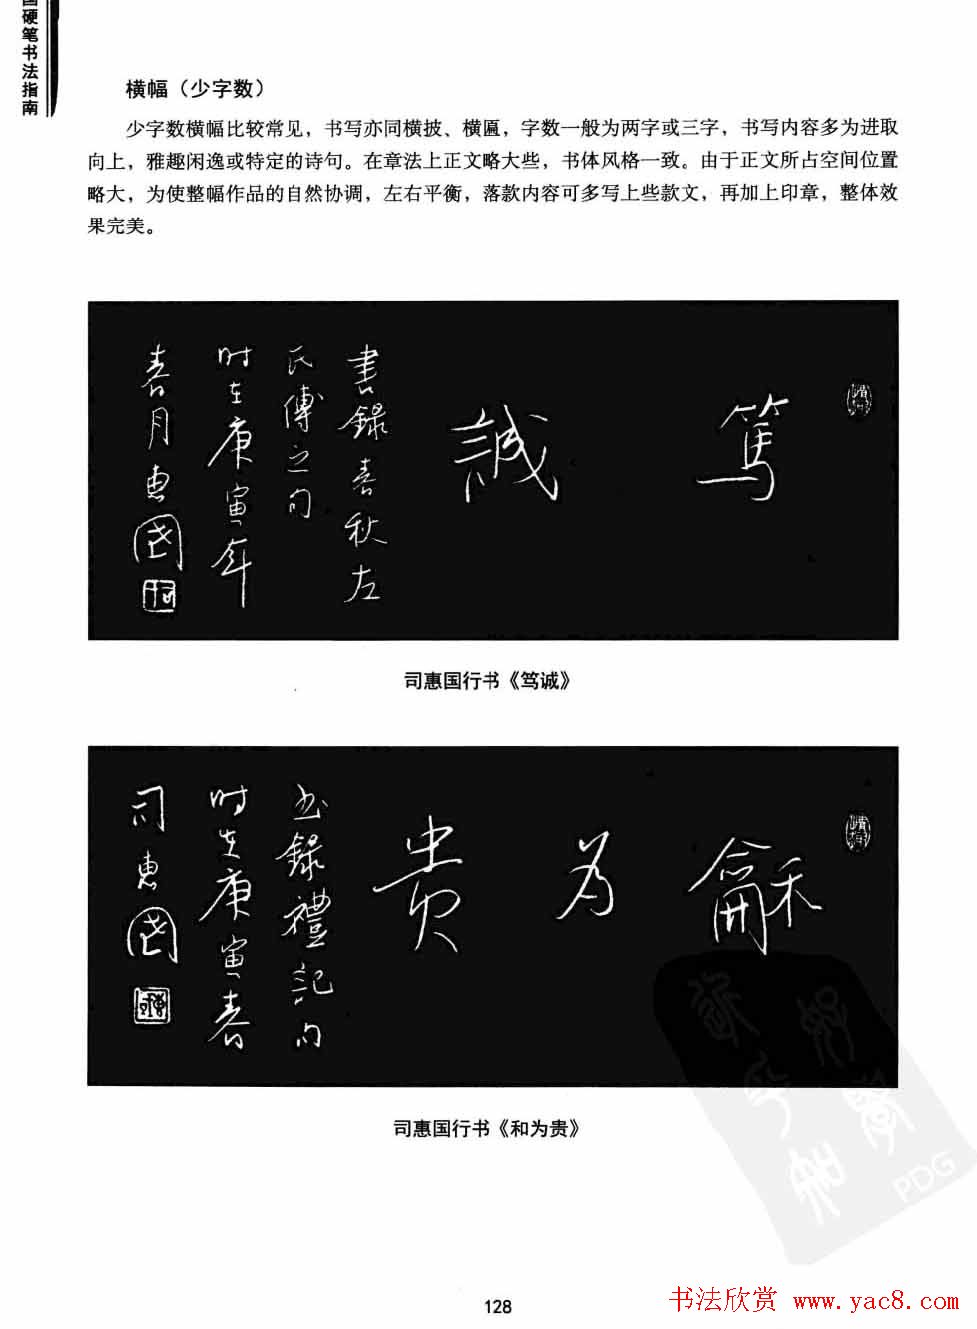 国硬笔书法指南
横幅（少字数）
少字数横幅比较常见，书写亦同横披、横匾，字数一般为两字或三字，书写内容多为进取
向上，雅趣闲逸或特定的诗句。在章法上正文略大些，书体风格一致。由于正文所占空间位置
略大，为使整幅作品的自然协调，左右平衡，落款内容可多写上些款文，再加上印章，整体效
果完美。
篤誠
書錄春秋左
氏傳之句
时在庚寅年
春月惠國
司惠国行书《笃诚》
龢为贵
书錄禮記句
时在庚寅春
司惠國
司惠国行书《和为贵》
PDG
128
书法欣赏 www.yac8.com